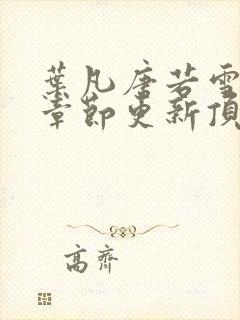 葉凡唐若雪
章節更新頂
高齋